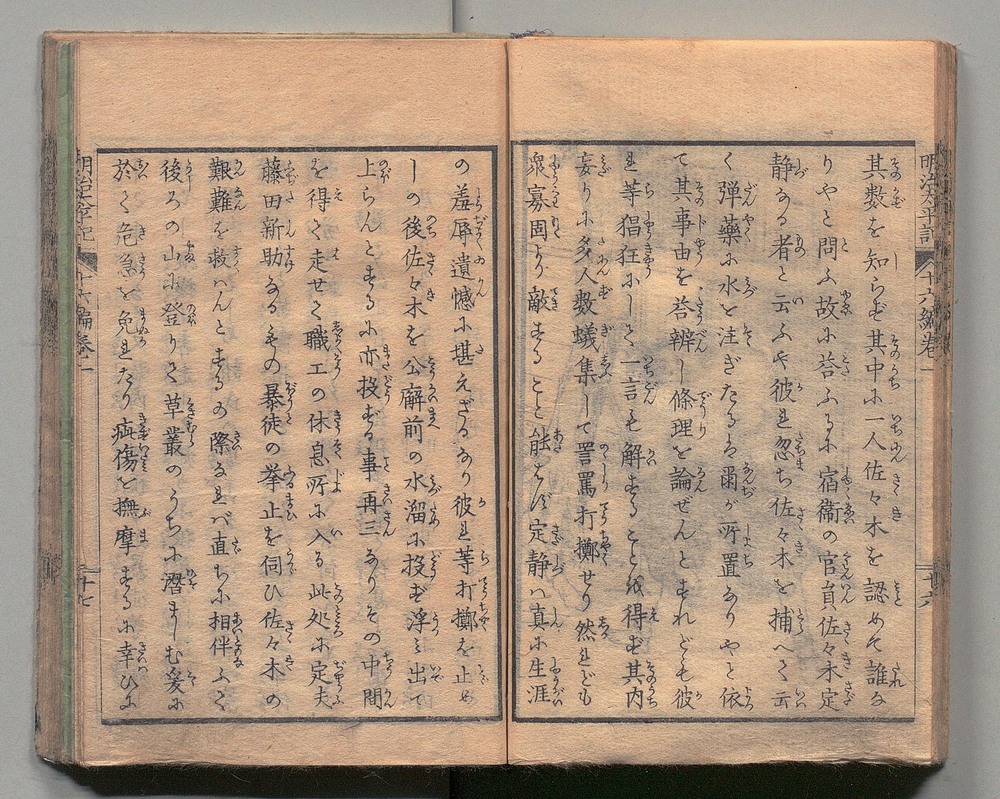 明治太平記 十六編巻一
其数を知らず其中に一人佐々木を認めて誰な
りやと問ふ故に答ふるに宿衛の官員佐々木定
静なる者と云ふや彼れ忽ち佐々木を捕へて云
く弾藥に水を注ぎたるは爾が所置なりやと依
て其事由を答辨し條理を論ぜんとすれども彼
れ等猖狂にして一言も解することを得ず其内
妄りに多人数蟻集して詈罵打擲せり然れども
衆寡固より敵することは能はず定静は真に生涯
十六
の羞辱遺憾に堪えざるなり彼れ等打擲を止め
しの後佐々木を公廨前の水溜に投ず浮み出て
上らんとするに亦投ずる事再三なりその中間
を得て走せて職工の休息所に入る此処に定夫
藤田新助なるもの暴徒の挙止を伺ひ佐々木の
艱難を救はんとするの際なれバ直ちに相伴ふて
後ろの山に登りて草叢のうちに潜ましむ爰に
於て危急を免れたり疵傷を撫摩するに幸ひに
明治太平記 十六編巻一
十七